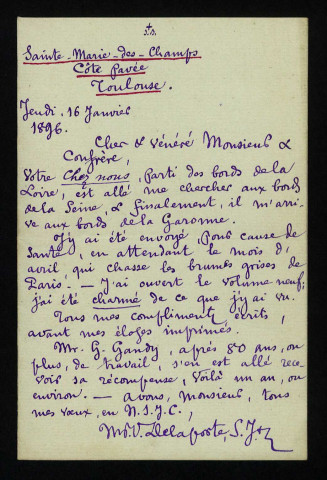 Sainte-Marie-des-Champs
Côte Pavée
Toulouse.
Jeudi, 16 Janvier
1896.
Cher & vénéré Monsieur &
Confrère,
Votre Chez nous, parti des bords de la
Loire, est allé me chercher aux bords
de la Seine, & finalement, il m'arri-
ve aux bords de la Garonne.
J'y ai été envoyé, pour cause de
santé, en attendant le mois d'
avril, qui chasse les brumes grises de
Paris. — J'ai ouvert le volume neuf;
j'ai été charmé de ce que j'y ai vu.
Tous mes compliments écrits,
avant mes éloges imprimés.
Mr. G. Gandy, après 80 ans, ou
plus, de travail, s'en est allé rece-
voir sa récompense, voilà un an, ou
environ. — à vous, Monsieur, tous
mes vœux, en N.S.J.C.,
V. Delaporte, S.J.